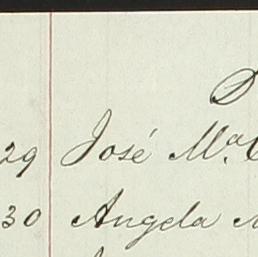 29 José Mª
30 Angela